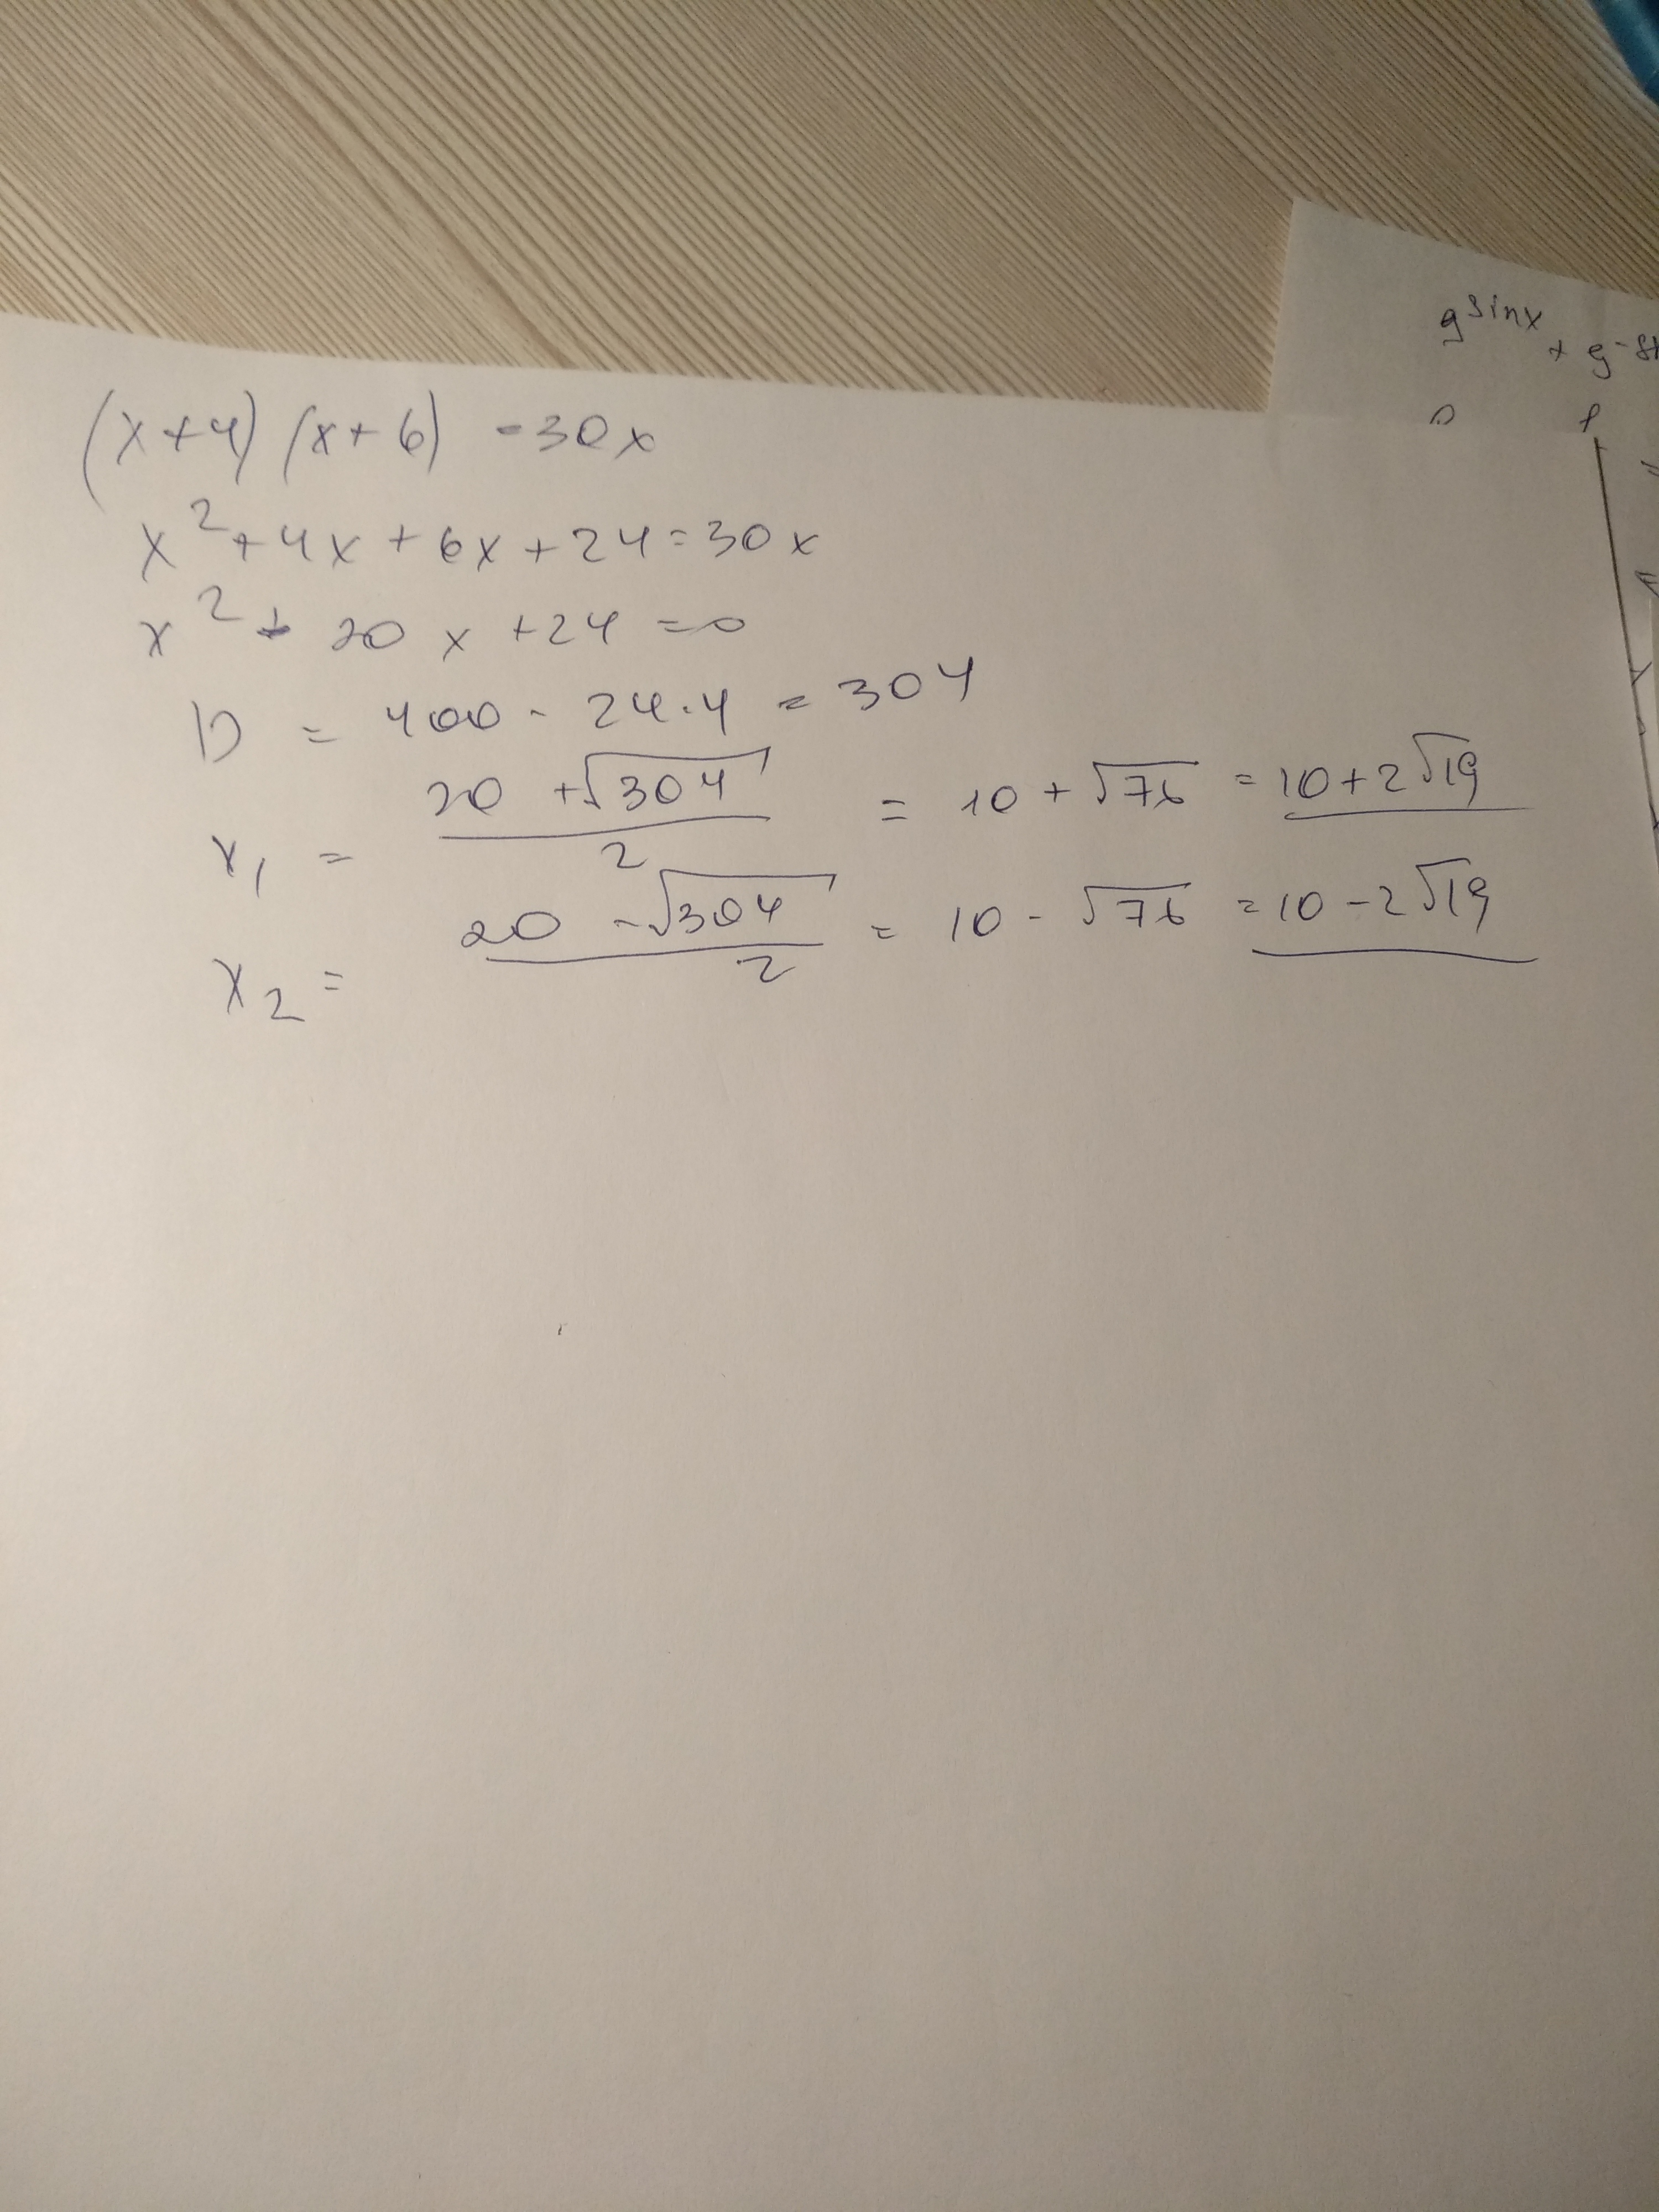 (x+4)(x+6) = 30x
x² + 4x + 6x + 24 = 30x
x² - 20x + 24 = 0
D = 400 - 24·4 = 304
x₁ = (20 + √304)/2 = 10 + √76 = 10 + 2√19
x₂ = (20 - √304)/2 = 10 - √76 = 10 - 2√19
9^sinx + 9^-si
0 1